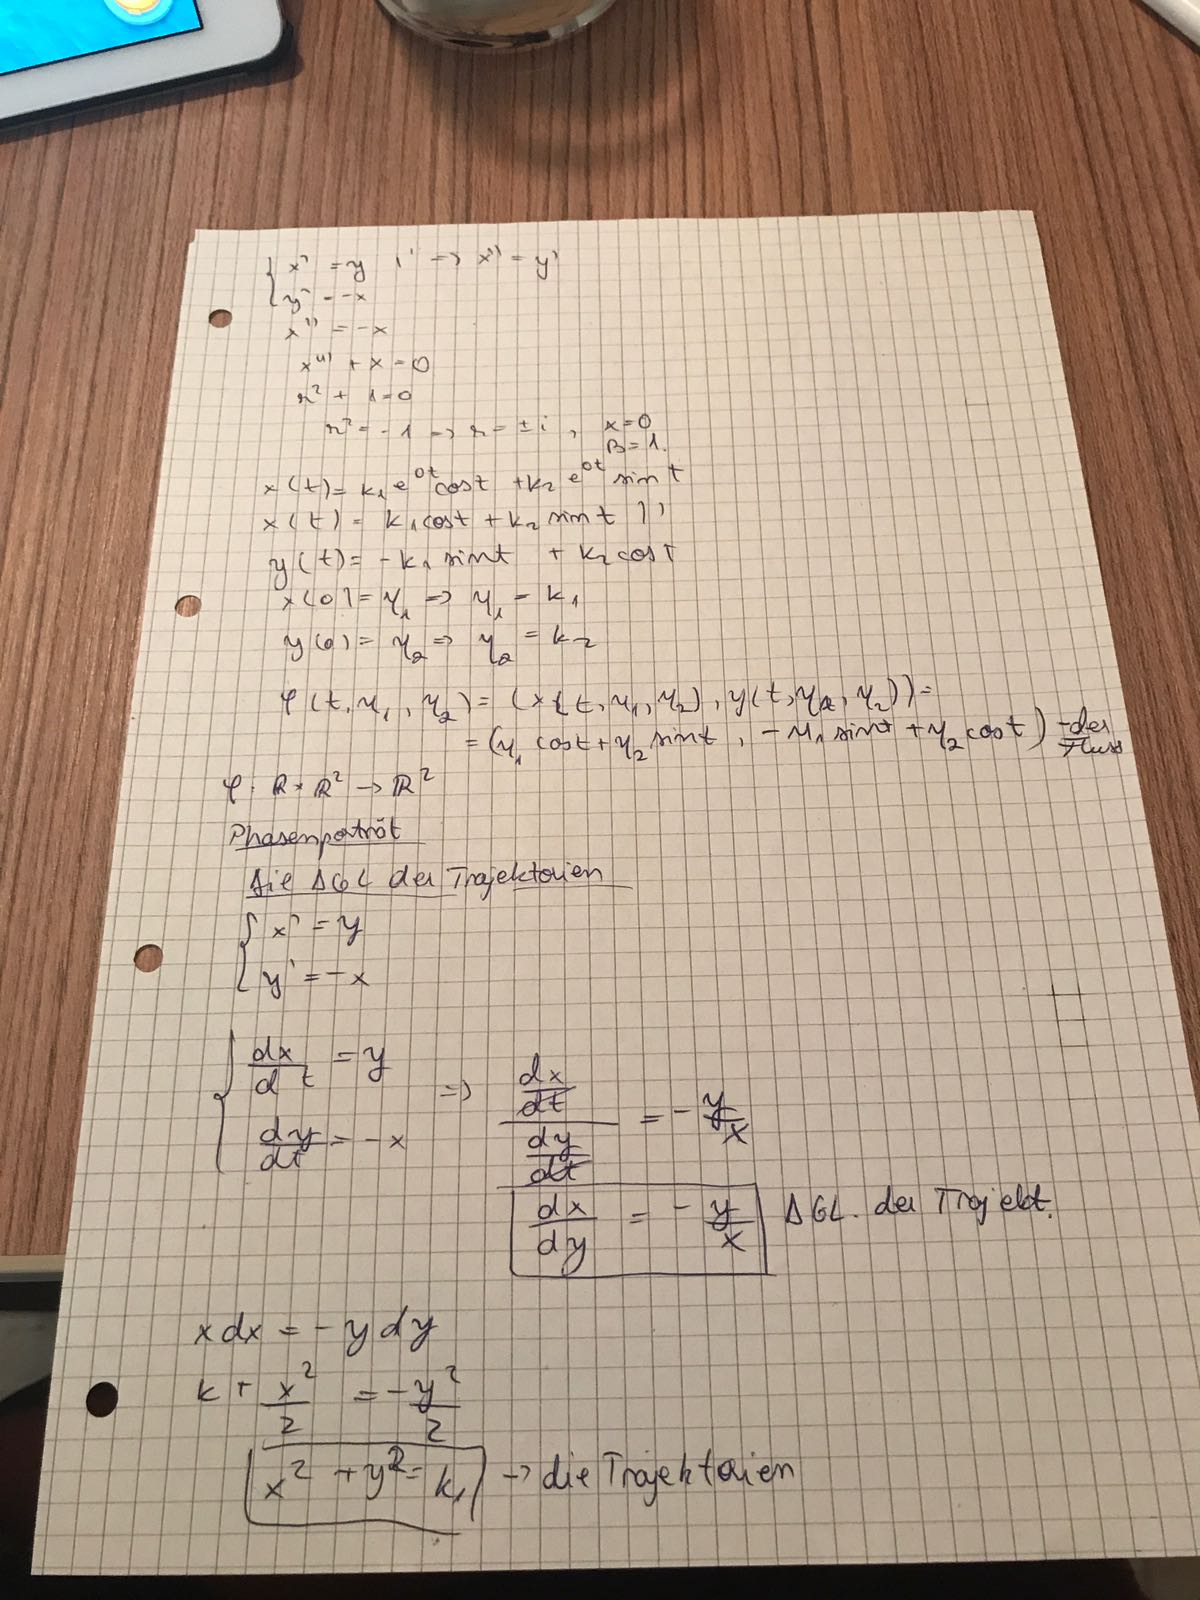 { x' = y |' => x'' = y'
{ y' = -x
x'' = -x
x'' + x = 0
r² + 1 = 0
r² = -1 => r = ±i , α = 0
β = 1.
x(t) = k₁ e^{0t} cos t + k₂ e^{0t} sin t
x(t) = k₁ cos t + k₂ sin t |'
y(t) = -k₁ sin t + k₂ cos t
x(0) = η₁ => η₁ = k₁
y(0) = η₂ => η₂ = k₂
φ(t, η₁, η₂) = (x(t, η₁, η₂), y(t, η₁, η₂)) =
= (η₁ cos t + η₂ sin t, -η₁ sin t + η₂ cos t) - der Fluss
φ: ℝ × ℝ² → ℝ²
Phasenporträt
Die DGL der Trajektorien
{ x' = y
{ y' = -x
{ dx/dt = y
{ dy/dt = -x
=> (dx/dt)/(dy/dt) = - y/x
dx/dy = - y/x DGL. der Trajekt.
x dx = - y dy
k + x²/2 = - y²/2
x² + y² = k₁ → die Trajektorien